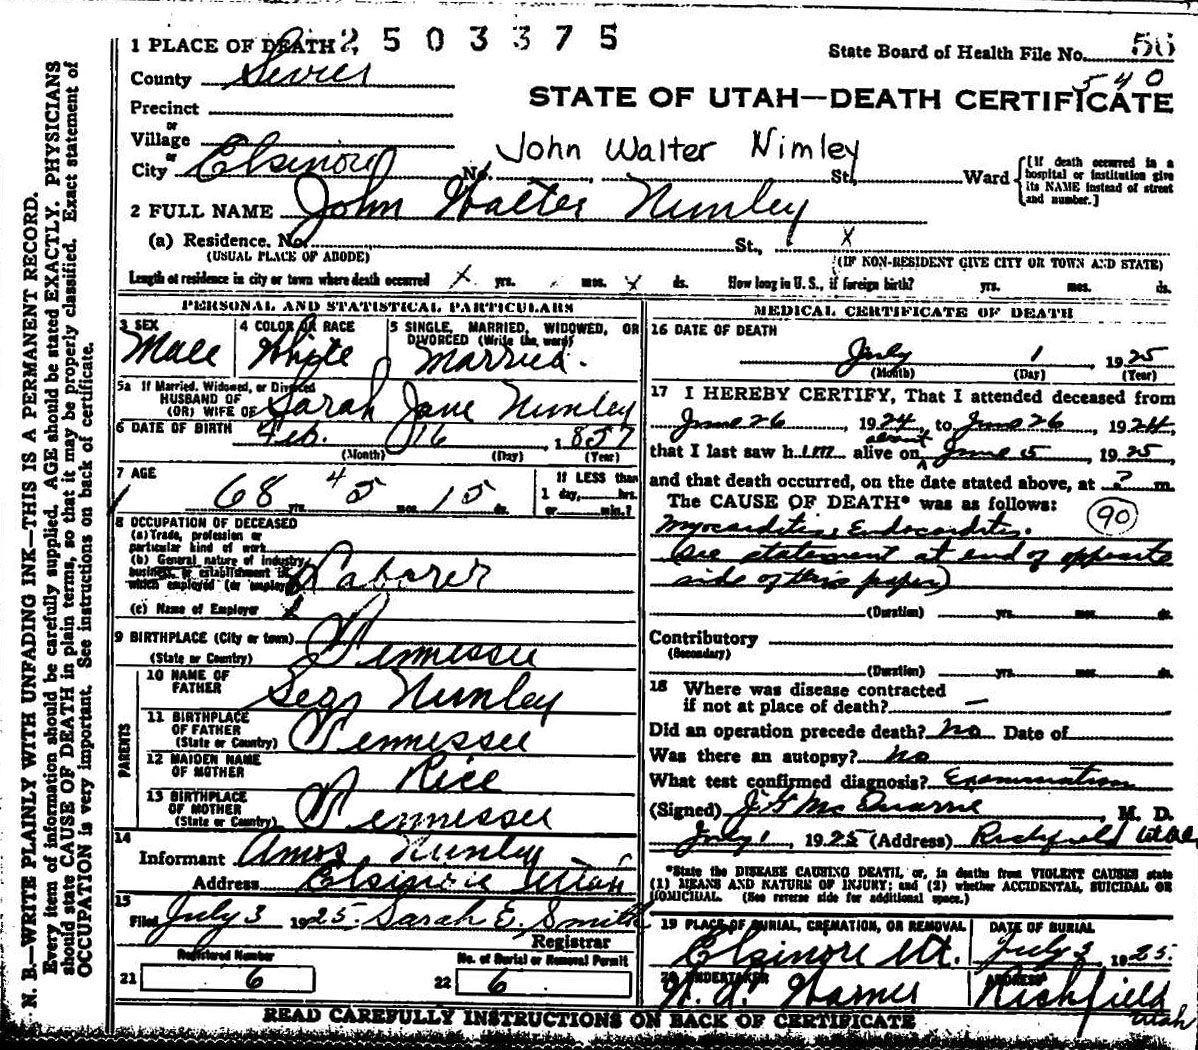 N. B.—WRITE PLAINLY WITH UNFADING INK—THIS IS A PERMANENT RECORD.
Every item of information should be carefully supplied. AGE should be stated EXACTLY. PHYSICIANS
should state CAUSE OF DEATH in plain terms, so that it may be properly classified. Exact statement of
OCCUPATION is very important. See instructions on back of certificate.
1 PLACE OF DEATH 2503375
State Board of Health File No. 56
540
County Sevier
STATE OF UTAH—DEATH CERTIFICATE
Precinct
or
Village
or
John Walter Nimley
City Elsinore No. St, Ward
[If death occurred in a
hospital or institution give
its NAME instead of street
and number.]
2 FULL NAME John Walter Numley
(a) Residence. No. St., X
(USUAL PLACE OF ABODE) (IF NON-RESIDENT GIVE CITY OR TOWN AND STATE)
Length of residence in city or town where death occurred X yrs. mos. X ds. How long in U. S., if foreign birth? yrs. mos. ds.
PERSONAL AND STATISTICAL PARTICULARS
3 SEX
Male
4 COLOR OR RACE
White
5 SINGLE, MARRIED, WIDOWED, OR
DIVORCED (Write the word)
Married.
5a If Married, Widowed, or Divorced
HUSBAND OF
(OR) WIFE OF Sarah Jane Numley
6 DATE OF BIRTH Feb. 16 1857
(Month) (Day) (Year)
7 AGE
68 yrs. 4 mos. 15 ds.
If LESS than
1 day, hrs.
or min.?
8 OCCUPATION OF DECEASED
(a) Trade, profession or
particular kind of work
(b) General nature of industry,
business, or establishment in
which employed (or employer)
Laborer
(c) Name of Employer
9 BIRTHPLACE (City or town)
(State or Country) Tennessee
PARENTS
10 NAME OF
FATHER Numley
11 BIRTHPLACE
OF FATHER
(State or Country) Tennessee
12 MAIDEN NAME
OF MOTHER Rice
13 BIRTHPLACE
OF MOTHER
(State or Country) Tennessee
14
Informant Amos Numley
Address Elsinore Utah
15
Filed July 3 1925. Sarah E. Smith
Registrar
Registered Number
21 6
No. of Burial or Removal Permit
22 6
MEDICAL CERTIFICATE OF DEATH
16 DATE OF DEATH
July 1 1925
(Month) (Day) (Year)
17 I HEREBY CERTIFY, That I attended deceased from
June 26, 1924, to June 26, 1924,
about
that I last saw him alive on June 5, 1925,
and that death occurred, on the date stated above, at ? m.
The CAUSE OF DEATH* was as follows:
90
Myocarditis, Endocarditis.
(see statement at end of opposite
side of this paper)
(Duration) yrs. mos. ds.
Contributory
(Secondary)
(Duration) yrs. mos. ds.
18 Where was disease contracted
if not at place of death? —
Did an operation precede death? no Date of
Was there an autopsy? no
What test confirmed diagnosis? Examination
(Signed) J G McQuarrie, M. D.
July 1, 1925 (Address) Richfield Utah
*State the DISEASE CAUSING DEATH, or, in deaths from VIOLENT CAUSES state
(1) MEANS AND NATURE OF INJURY; and (2) whether ACCIDENTAL, SUICIDAL OR
HOMICIDAL. (See reverse side for additional space.)
19 PLACE OF BURIAL, CREMATION, OR REMOVAL
Elsinore Ut.
DATE OF BURIAL
July 3 1925.
20 UNDERTAKER
ADDRESS
Richfield
Utah
READ CAREFULLY INSTRUCTIONS ON BACK OF CERTIFICATE